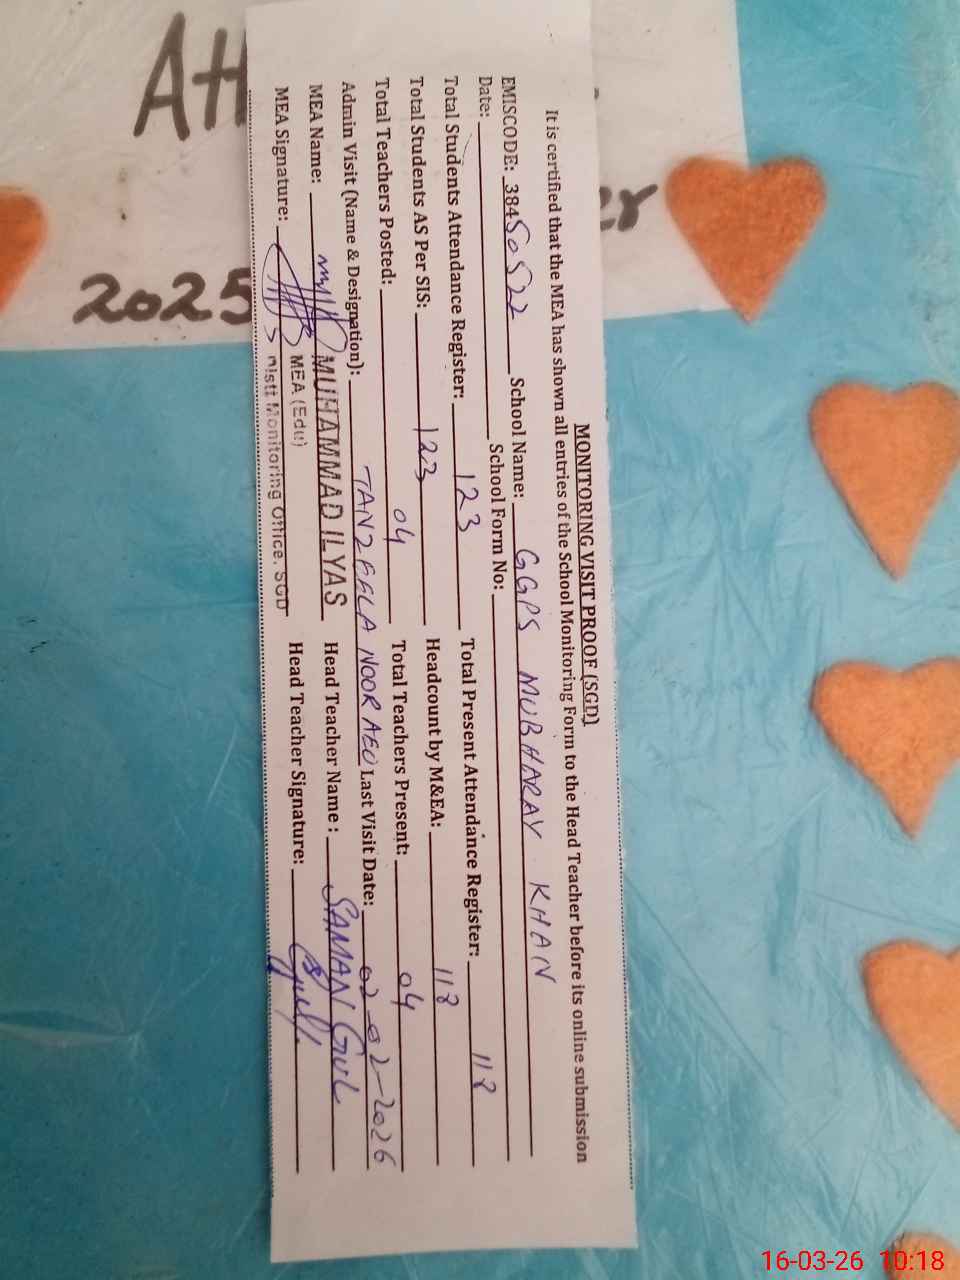 MONITORING VISIT PROOF (SGD)
It is certified that the MEA has shown all entries of the School Monitoring Form to the Head Teacher before its online submission
EMISCODE: 38450522 School Name: GGPS MUBHARAY KHAN
Date: School Form No:
Total Students Attendance Register: 123 Total Present Attendance Register: 118
Total Students AS Per SIS: 123 Headcount by M&EA: 118
Total Teachers Posted: 04 Total Teachers Present: 04
Admin Visit (Name & Designation): TANZEELA NOOR AEO Last Visit Date: 02-02-2026
MEA Name: MUHAMMAD ILYAS Head Teacher Name : SAMAN GUL
MEA (Edu)
MEA Signature: Distt Monitoring Office, SGD Head Teacher Signature:
2025
16-03-26 10:18